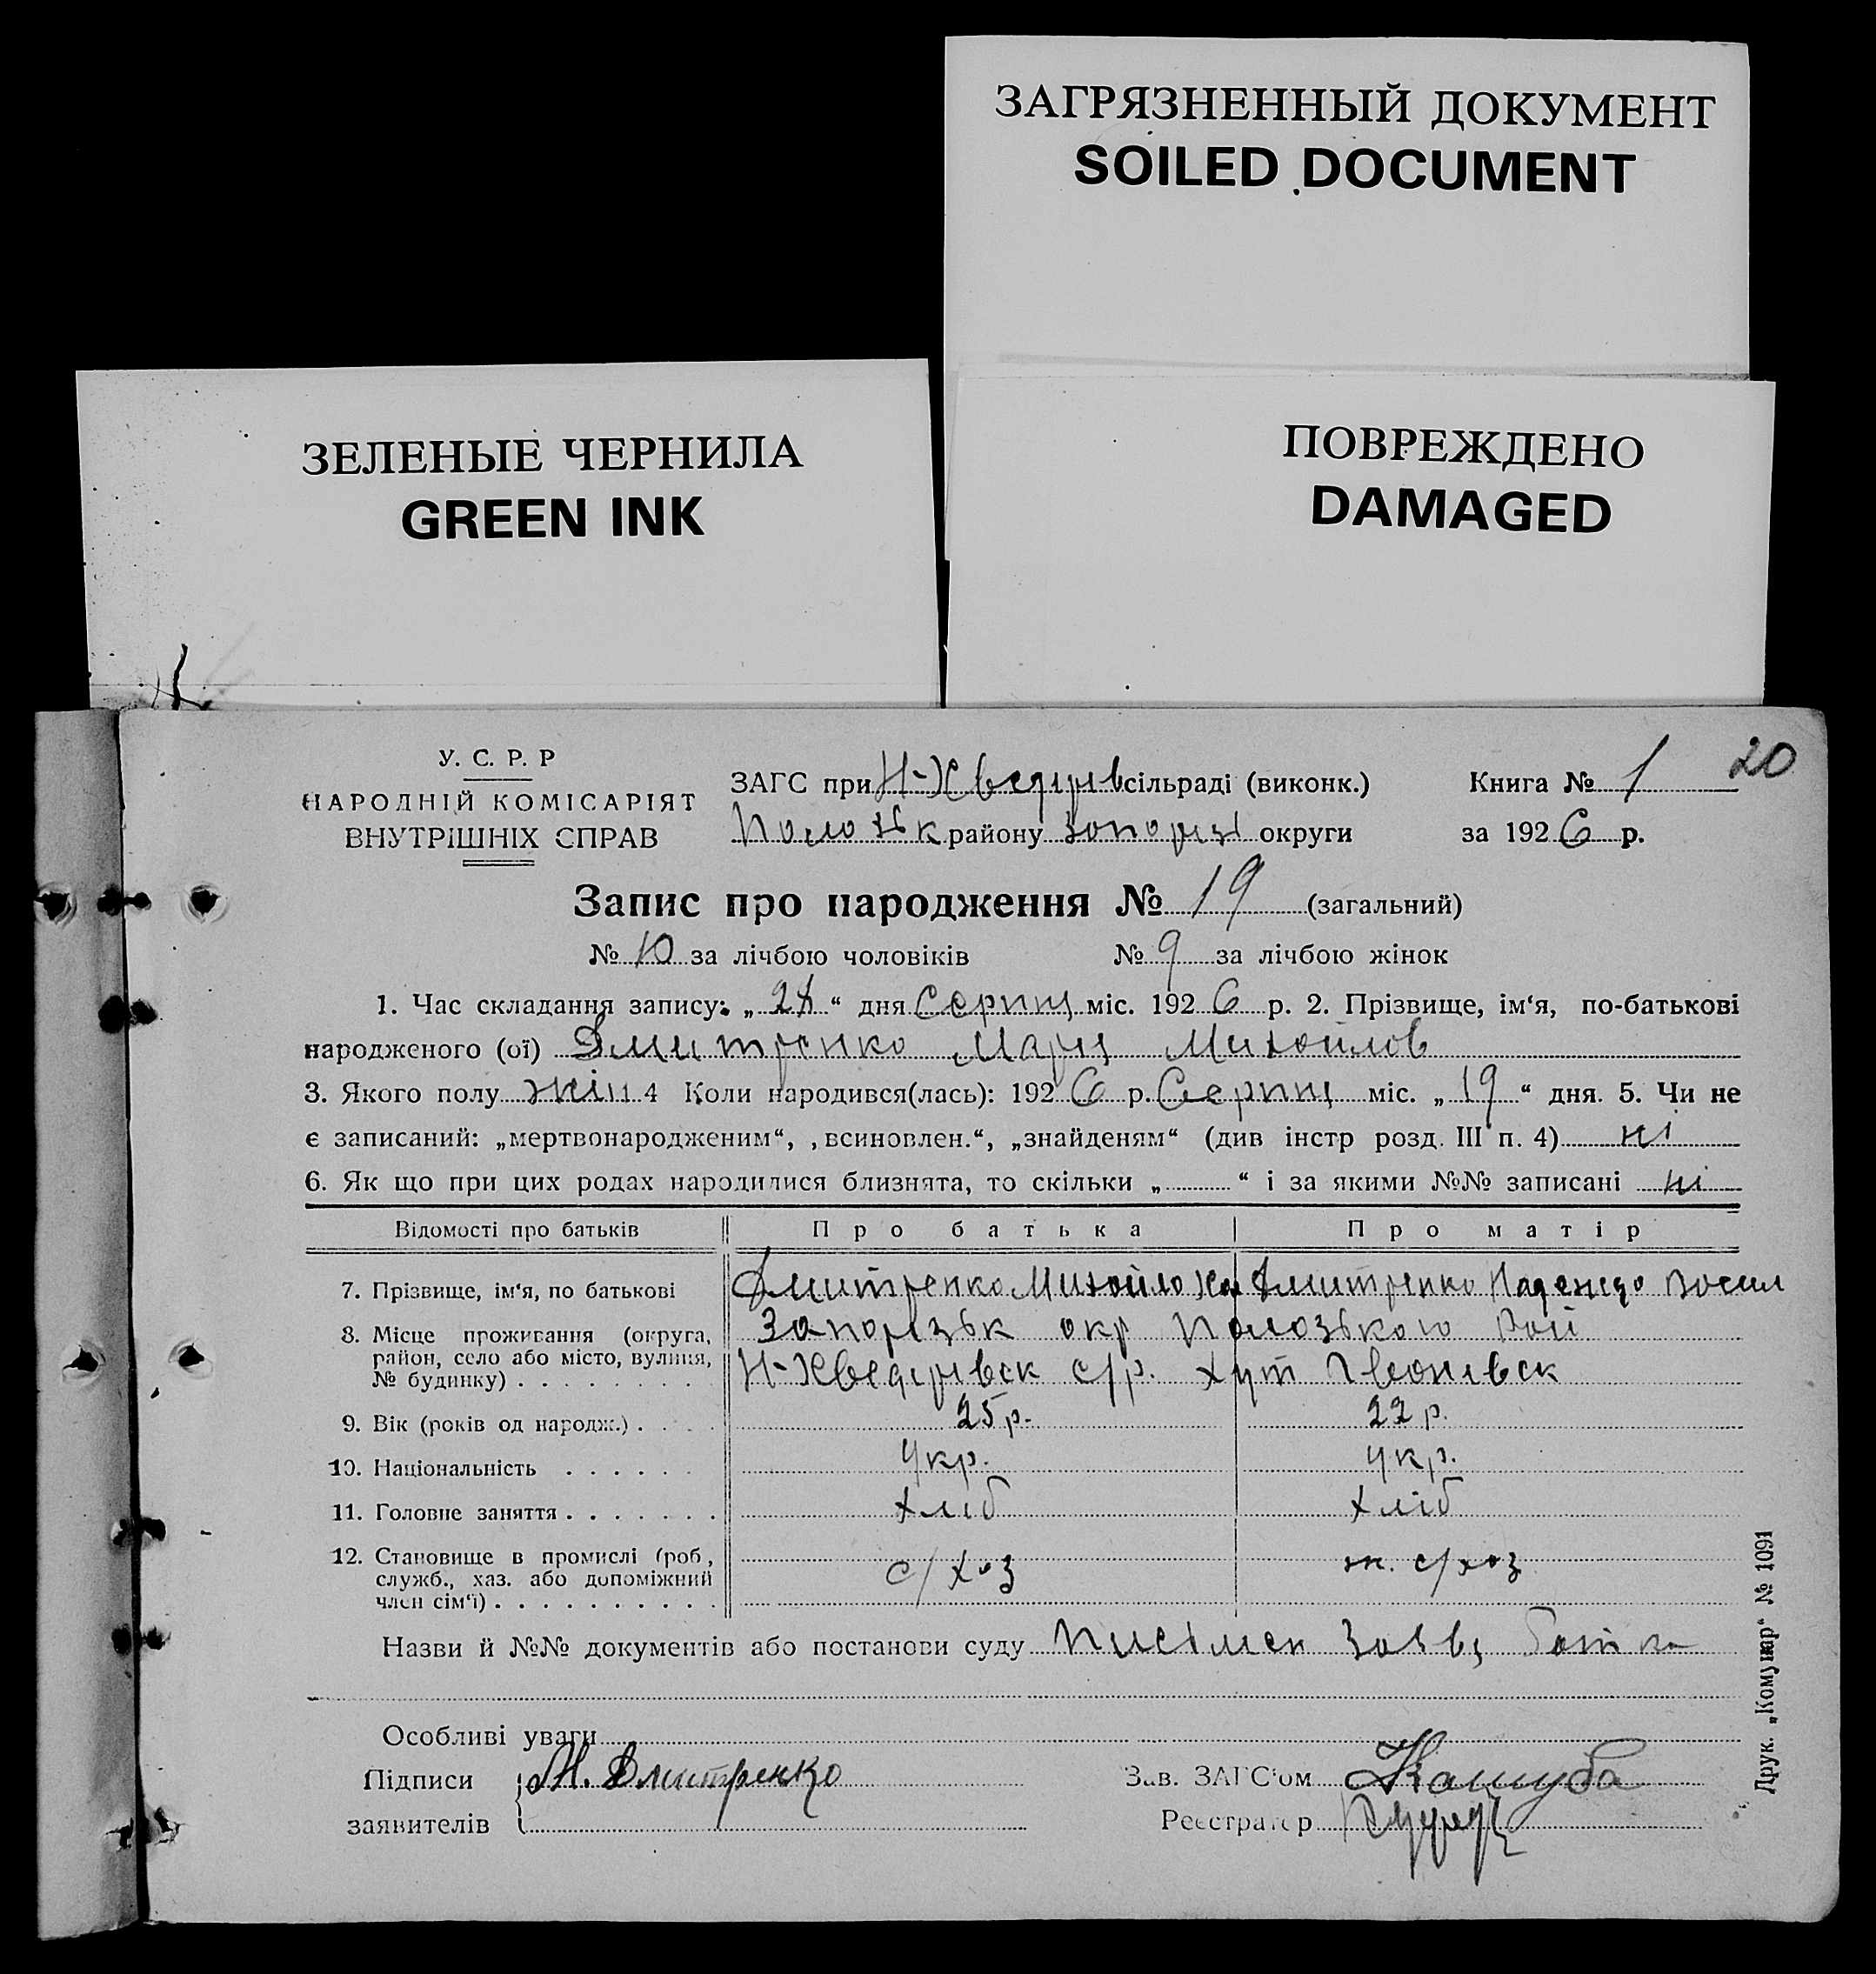 ЗАГРЯЗНЕННЫЙ ДОКУМЕНТ
SOILED DOCUMENT
ЗЕЛЕНЫЕ ЧЕРНИЛА
GREEN INK
ПОВРЕЖДЕНО
DAMAGED
20
У. С. Р. Р
НАРОДНІЙ КОМІСАРІЯТ
ВНУТРІШНІХ СПРАВ
ЗАГС при Н-Хведорів сільраді (виконк.)
Полозьк району Запоріз округи
Книга № 1
за 1926 р.
Запис про народження № 19 (загальний)
№ 10 за лічбою чоловіків № 9 за лічбою жінок
1. Час складання запису: „ “ дня Серпня міс. 1926 р. 2. Прізвище, ім‘я, по-батькові
народженого (ої) Дмитренко Марія Михайлов
3. Якого полу жін 4 Коли народився(лась): 1926 р. Серпня міс. „19“ дня. 5. Чи не
є записаний: „мертвонародженим“, „всиновлен.“, „знайденям“ (див інстр розд. III п. 4) ні
6. Як що при цих родах народилися близнята, то скільки „ “ і за якими №№ записані ні
Відомості про батьків Про батька Про матір
7. Прізвище, ім‘я, по батькові Дмитренко Михайло Дмитренко Надежда Васил
8. Місце проживання (округа, Запорізьк окр Полозького Рай
район, село або місто, вулиця, Н-Хведорівск с/р. хут
№ будинку)
9. Вік (років од народж.) 25 р. 22 р.
10. Національність укр. укр.
11. Головне заняття хліб хліб
12. Становище в промислі (роб, с/хоз ж. с/хоз
служб., хаз. або допоміжний
член сім‘ї)
Назви й №№ документів або постанови суду Письмен заява батька
Особливі уваги
Підписи М. Дмитренко
заявителів
Зав. ЗАГС‘ом Кашуба
Реєстратор
Друк. „Комунар“ № 1091